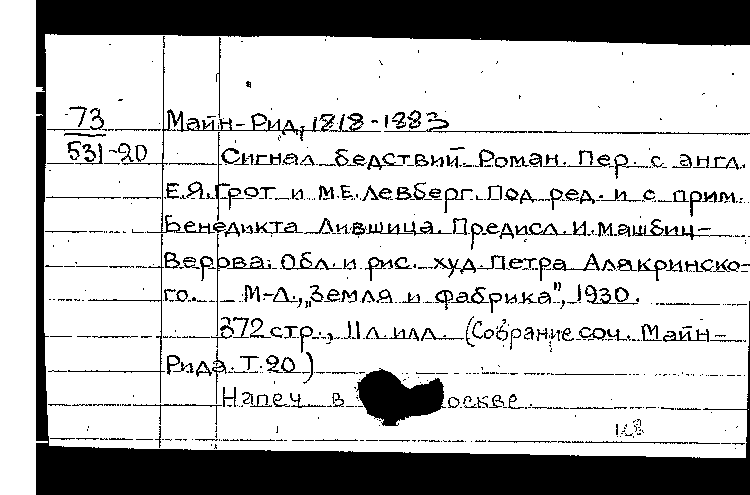 73 Майн-Рид, 1818-1883
531-20 Сигнал бедствий. Роман. Пер. с англ.
Е.Я.Грот и М.Е.Левберг. Под ред. и с прим.
Бенедикта Лившица. Предисл. И. Машбиц-
Верова. Обл. и рис. худ. Петра Алякринско-
го. М-Л., „Земля и фабрика", 1930.
372 стр., 11 л. илл. (Собрание соч. Майн-
Рида. Т. 20)
Напеч в оскве.